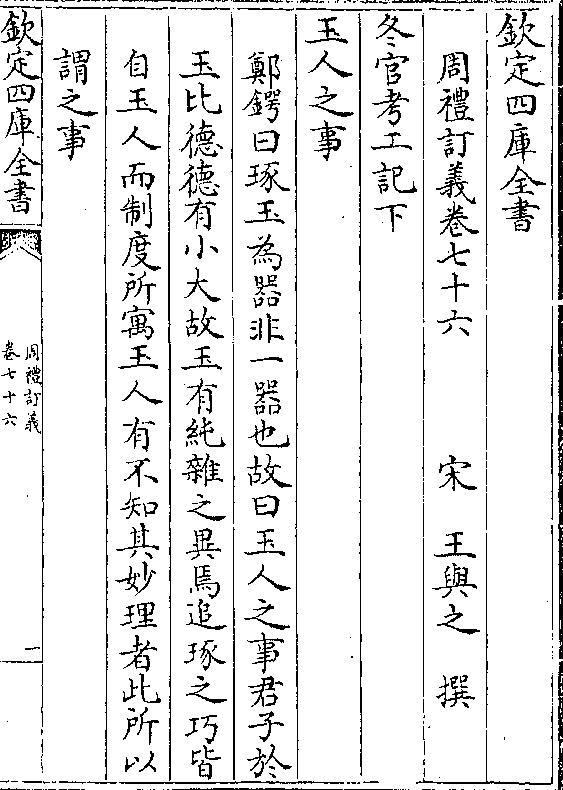 欽定四庫全書
周禮訂義卷七十六　宋　王與之　撰
冬官考工記下
玉人之事
鄭鍔曰琢玉為器非一器也故曰玉人之事君子於
玉比德德有小大故玉有純雜之異焉追琢之巧皆
自玉人而制度所寓玉人有不知其妙理者此所以
謂之事
欽定四庫全書
周禮訂義
卷七十六
一